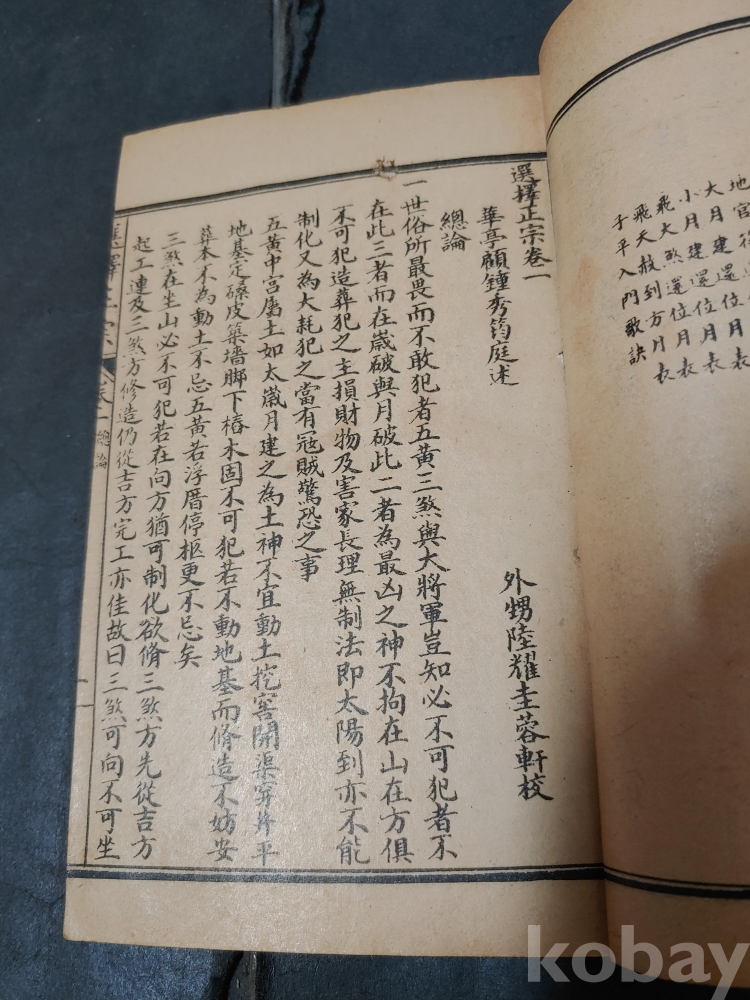 地官
大月建還位月表
小月建還位月表
飛大煞還位月表
飛天赦到方月表
子平入門歌訣
選擇正宗卷一
華亭顧鍾秀筠庭述
外甥陸耀圭蓉軒校
總論
一世俗所最畏而不敢犯者五黃三煞與大將軍豈知必不可犯者不
在此三者而在歲破與月破此二者為最凶之神不拘在山在方俱
不可犯造葬犯之主損財物及害家長理無制法即太陽到亦不能
制化又為大耗犯之當有冠賊驚恐之事
五黃中宮屬土如太歲月建之為土神不宜動土挖窖開渠穿井平
地基定磉皮築墻脚下樁木固不可犯若不動地基而脩造不妨安
葬本不為動土不忌五黃若浮厝停柩更不忌矣
三煞在坐山必不可犯若在向方猶可制化欲脩三煞方先從吉方
起工連及三煞方修造仍從吉方完工亦佳故曰三煞可向不可坐
選擇正宗 卷一 總論
一
kobay